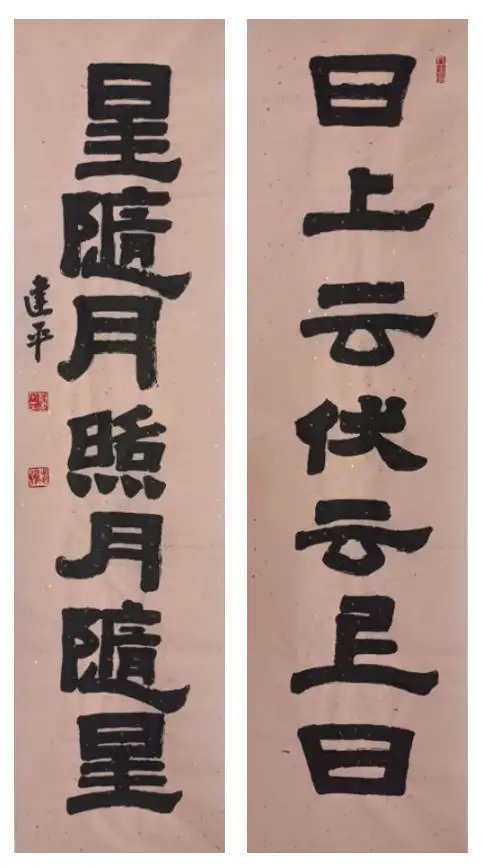 日上云伏云上日
星隨月照月隨星
建平